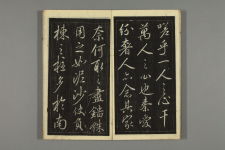 嗟乎一人之心千
萬人之心也秦愛
紛奢人亦念其家
奈何取之盡錙銖
用之如泥沙使負
棟之柱多於南